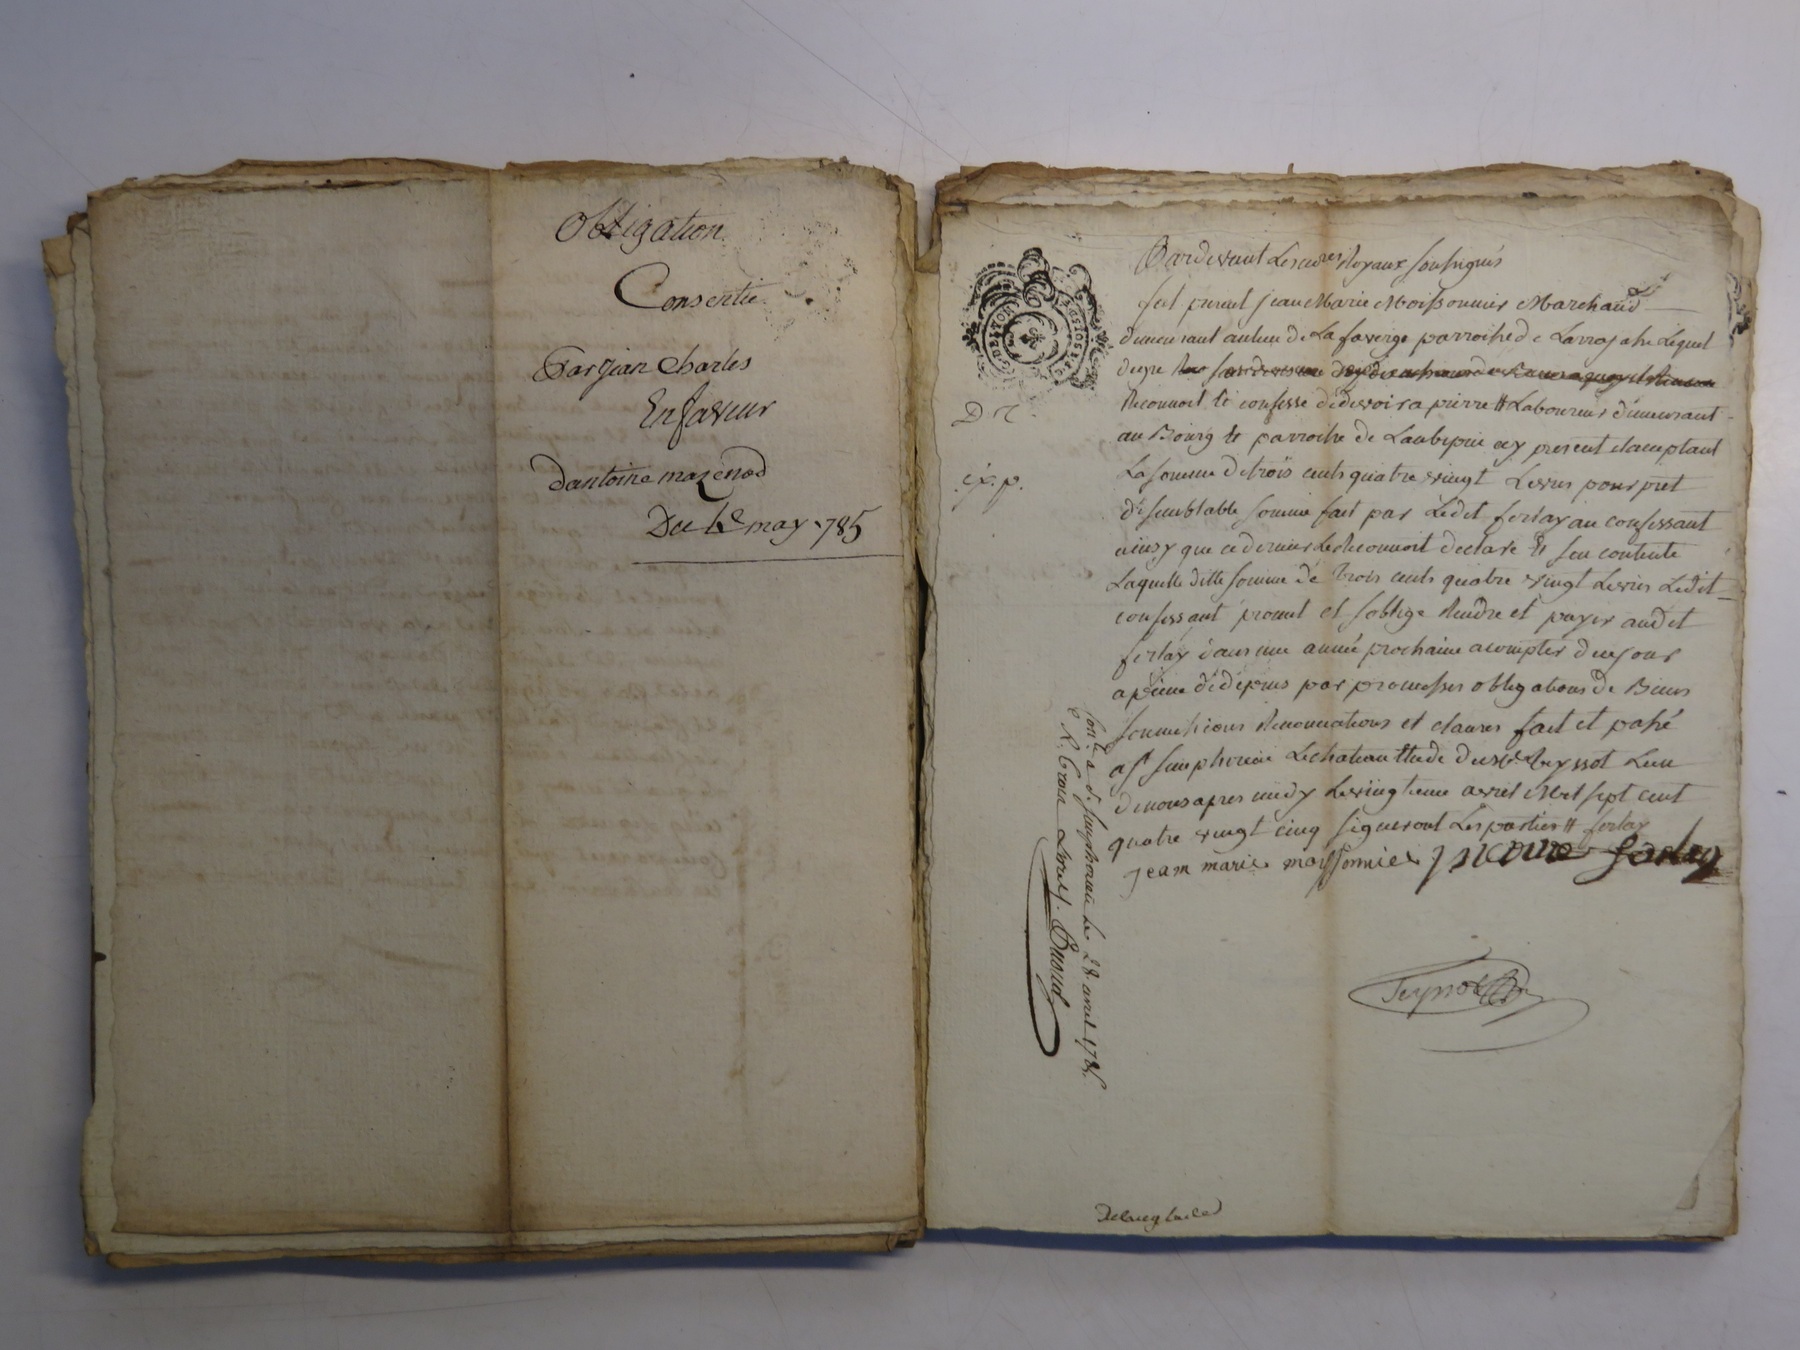 Obligation
Consentie
Par Jean Charles
En faveur
Dantoine mazenod
Du may 1785
Pardevant Les Royaux soussignés
fut present Jean Marie Moissonnier Marchand
demeurant au lieu de La faverge parroisse de Larrajasse Lequel
de gre
Reconnoit et confesse de devoir a pierre # Laboureur demeurant
au Bourg et parroisse de Laubepin icy present et acceptant
D r
La somme de trois cents quatre vingt Livres pour pret
ex. p.
de semblable somme fait par Ledit ferlay au confessant
ainsy que ce dernier Le Reconnoit declare et sen contente
Laquelle ditte somme de trois cents quatre vingt Livres Ledit
confessant promet et soblige Rendre et payer audit
ferlay dans une année prochaine a compter de ce jour
a peine de depens par promesses obligations de Biens
soumissions Renonciations et clauses fait et passé
a st simphorien Le chateau Etude de Teyssot Lun
de nous apres midy Le vingtieme avril Mil sept cent
quatre vingt cinq signeront Les parties # ferlay
jean marie moissonnier pierre ferlay
Cont. a st simphorien le 28 avril 1785
R. trois Livres